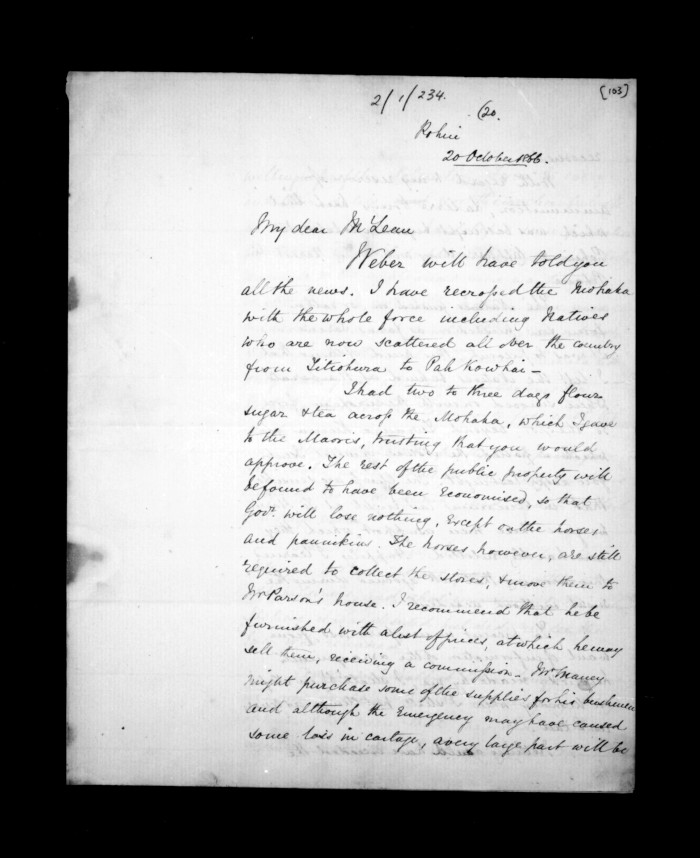 [103]
2/1/234.
(20.
Pohui
20 October 1866.
My dear McLean
Weber will have told you
all the news. I have recrossed the Mohaka
with the whole force including Natives
who are now scattered all over the country
from Titiohura to Pah Kowhai –
I had two to three days flour
sugar & tea across the Mohaka, which I gave
to the Maoris, trusting that you would
approve. The rest of the public property will
be found to have been economised, so that
Govt. will lose nothing, except on the horses
and pannikins. The horses however, are still
required to collect the stores, & move them to
Mr Parson's house. I recommend that he be
furnished with a list of prices, at which he may
sell them, receiving a commission. Mr Maney
might purchase some of the supplies for his bushmen
and although the Emergency may have caused
some loss in cartage, a very large part will be